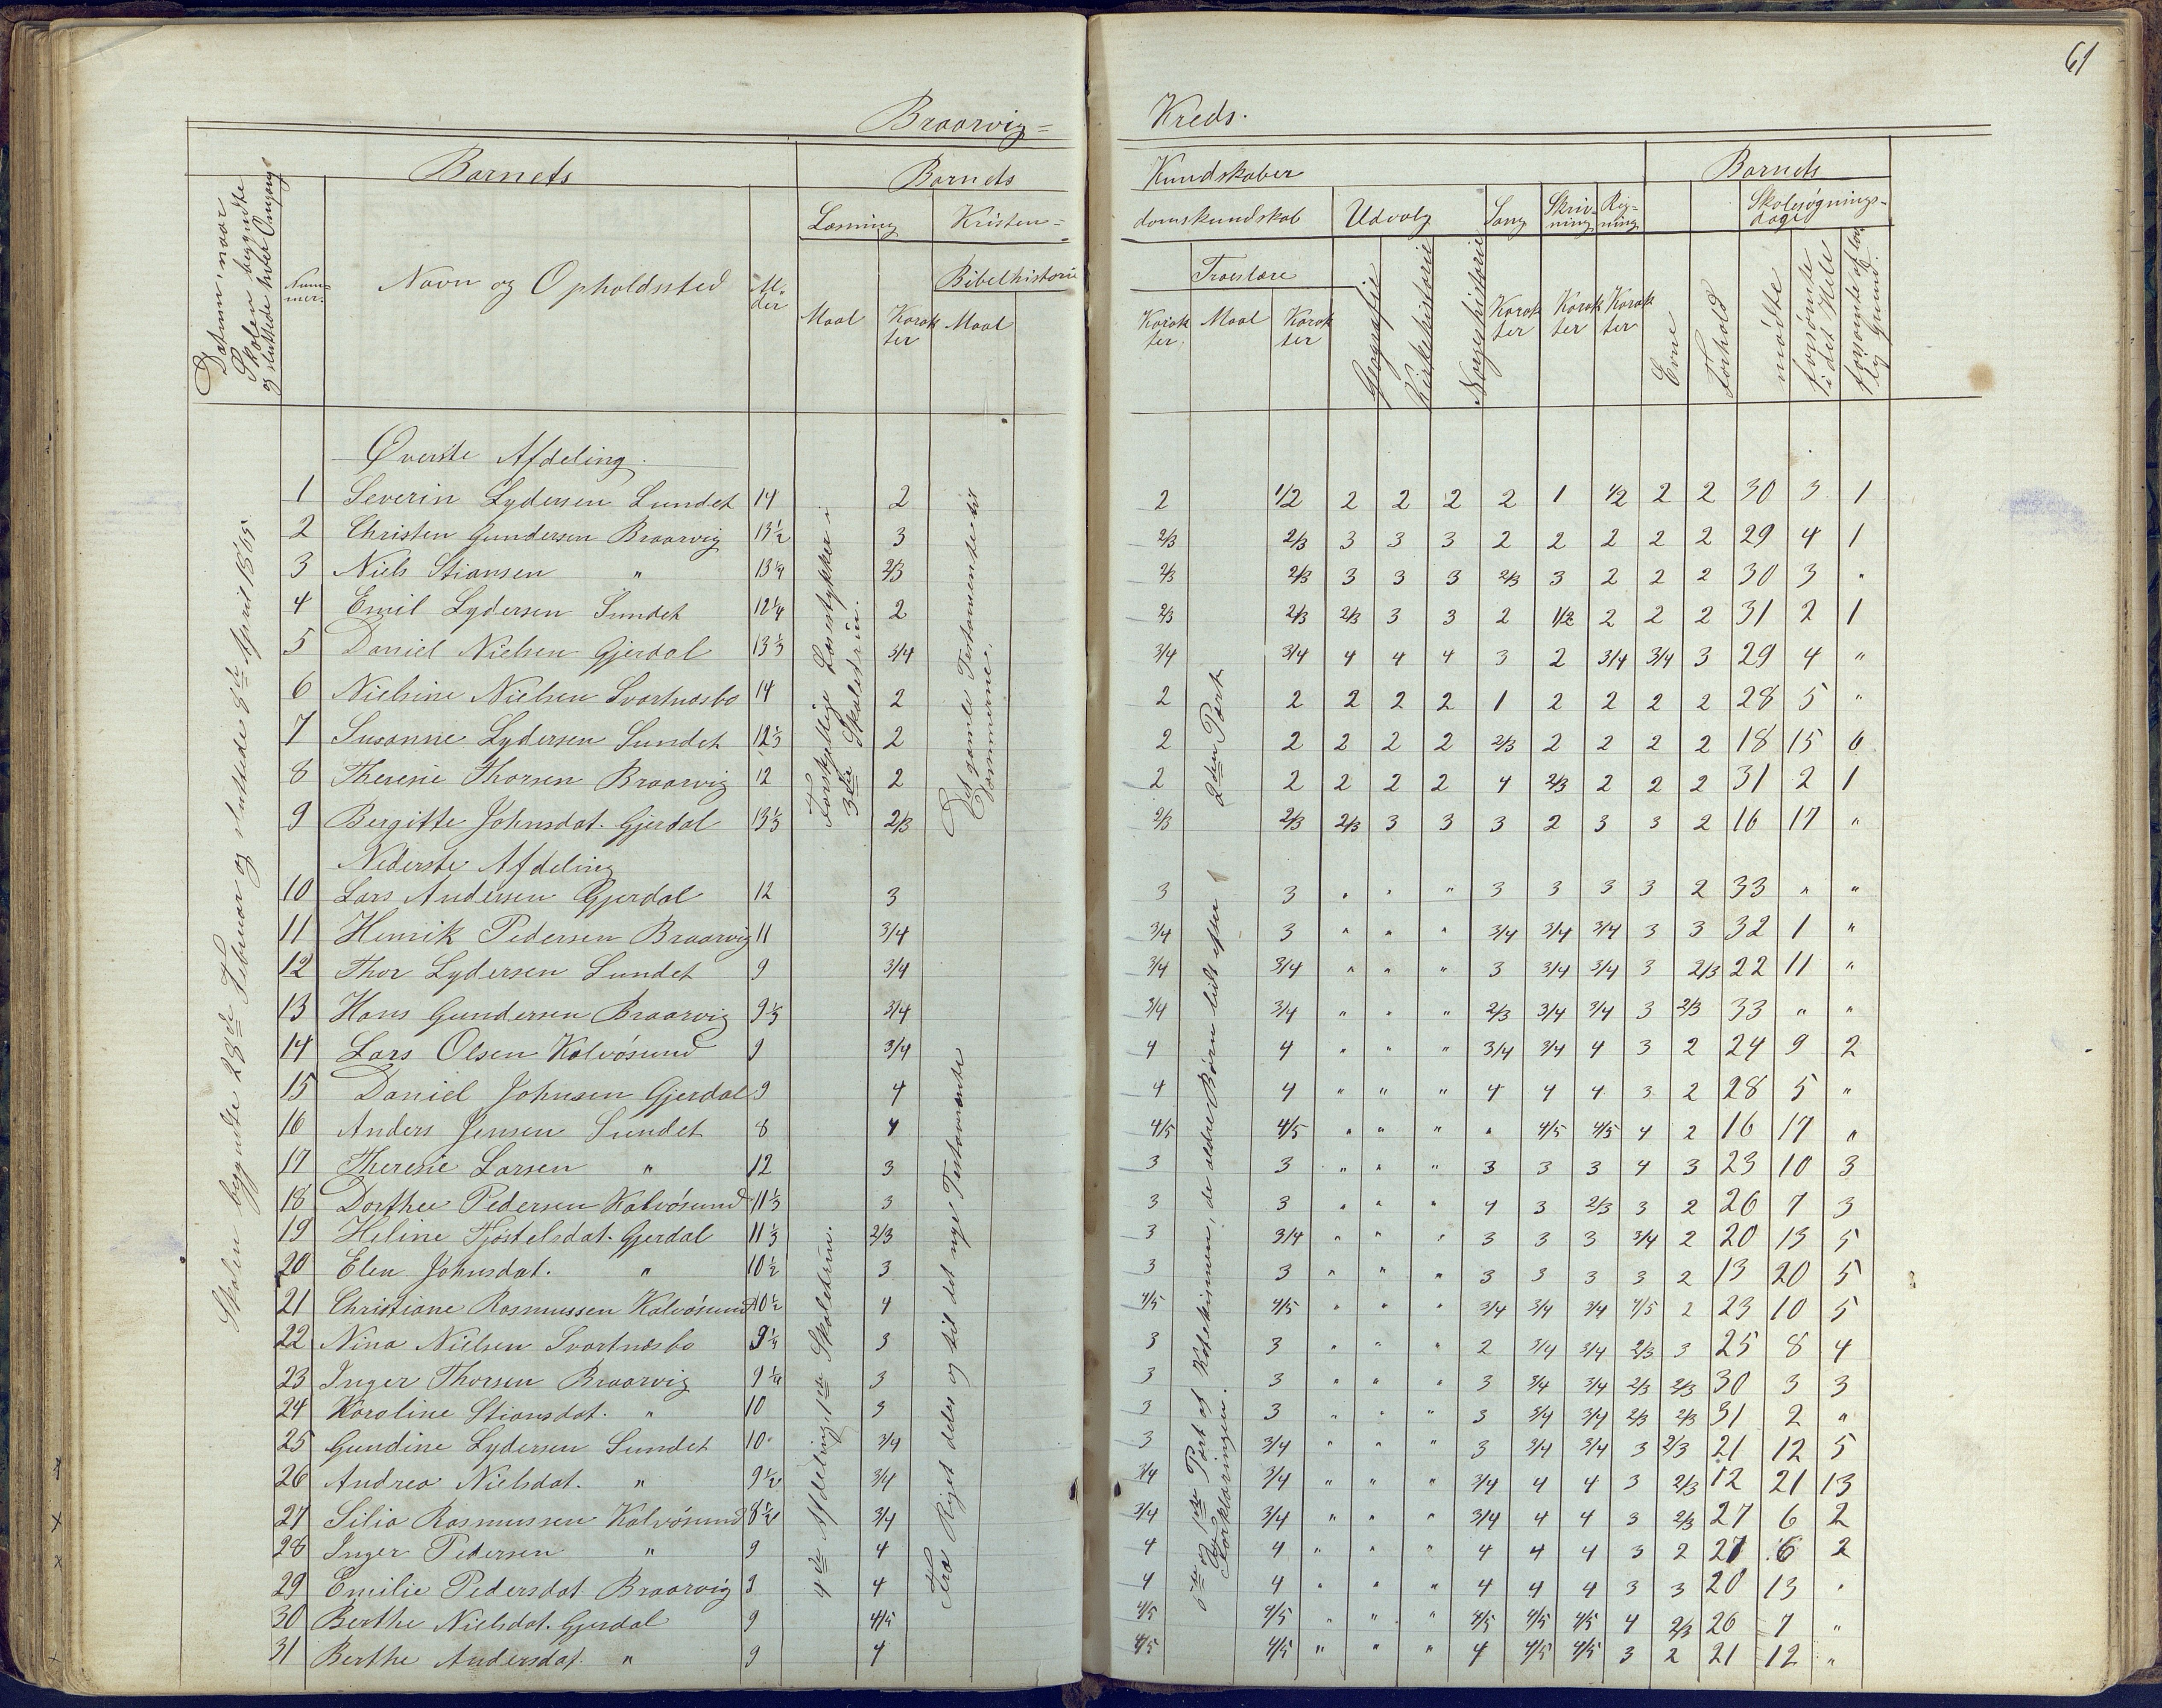 61
Braarvig=
Kreds.
Barnets
Barnets
Kundskaber
Barnets
Datum, naar Skolen begyndte og sluttede hver Omgang
Num=mer.
Navn og Opholdssted
Al=der
Læsning
Kristen=
domskundskab
Udvalg
Sang
Skriv=ning
Reg=ning
Skolesøgnings=dage
Bibelhistorie
Troeslære
Maal
Karakter
Maal
Karakter.
Maal
Karakter
Geografie
Kirkehistorie
Norgeshistorie
Karakter
Karakter
Karakter
Evne
Forhold
mødte
forsømte i det Hele
forsømte af lovlig Grund.
Skolen begyndte 28de Februar og sluttede 8de April 1865.
Forskjellige Læsestykker i 3die Skoletrin.
4de Afdeling, 1ste Skoletrin.
Det gamle Testamente til Dommerne.
Fra Riget deles og til det nye Testamente
2den Part
6te og 1ste Part af Katekismen, de ældre Børn lidt efter Forklaringen.
Øverste Afdeling.
1 Severin Lydersen Sundet 14 2 2 1/2 2 2 2 2 1 1/2 2 2 30 3 1
2 Christen Gundersen Braarvig 13½ 3 2/3 2/3 3 3 3 2 2 2 2 2 29 4 1
3 Niels Stiansen " 13¼ 2/3 2/3 2/3 3 3 3 2/3 3 2 2 2 30 3 "
4 Emil Lydersen Sundet 12¼ 2 2/3 2/3 2/3 3 3 2 1/2 2 2 2 31 2 1
5 Daniel Nielsen Gjerdal 13⅓ 3/4 3/4 3/4 4 4 4 3 2 3/4 3/4 3 29 4 "
6 Nielsine Nielsen Svartnæsbo 14 2 2 2 2 2 2 1 2 2 2 2 28 5 "
7 Susanne Lydersen Sundet 12⅓ 2 2 2 2 2 2 2/3 2 2 2 2 18 15 6
8 Theresie Thorsen Braarvig 12 2 2 2 2 2 2 4 2/3 2 2 2 31 2 1
9 Bergitte Johnsdat. Gjerdal 13⅓ 2/3 2/3 2/3 2/3 3 3 3 2 3 3 2 16 17 "
Nederste Afdeling
10 Lars Andersen Gjerdal 12 3 3 3 " " " 3 3 3 3 2 33 " "
11 Henrik Pedersen Braarvig 11 3/4 3/4 3 " " " 3/4 3/4 3/4 3 3 32 1 "
12 Thor Lydersen Sundet 9 3/4 3/4 3/4 " " " 3 3/4 3/4 3 2/3 22 11 "
13 Hans Gundersen Braarvig 9⅓ 3/4 3/4 3/4 " " " 2/3 3/4 3/4 3 2/3 33 " "
14 Lars Olsen Kalvøsund 9 3/4 4 4 " " " 3/4 3/4 4 3 2 24 9 2
15 Daniel Johnsen Gjerdal 9 4 4 4 " " " 4 4 4 3 2 28 5 "
16 Anders Jensen Sundet 8 4 4/5 4/5 " " " " 4/5 4/5 4 2 16 17 "
17 Theresie Larsen " 12 3 3 3 " " " 3 3 3 4 3 23 10 3
18 Dorthee Pedersen Kalvøsund 11⅓ 3 3 3 " " " 4 3 2/3 3 2 26 7 3
19 Heline Fjøstelsdat. Gjerdal 11⅓ 2/3 3 3/4 " " " 3 3 3 3/4 2 20 13 5
20 Elen Johnsdat. " 10½ 3 3 3 " " " 3 3 3 3 2 13 20 5
21 Christiane Rasmussen Kalvøsund 10½ 4 4/5 4/5 " " " 3/4 3/4 3/4 4/5 2 23 10 5
22 Nina Nielsen Svartnæsbo 9¼ 3 3 3 " " " 2 3/4 3/4 2/3 3 25 8 4
23 Inger Thorsen Braarvig 9¼ 3 3 3 " " " 3 3/4 3/4 2/3 2/3 30 3 3
24 Karoline Stiansdat. " 10 3 3 3 " " " 3 3/4 3/4 2/3 2/3 31 2 "
25 Gundine Lydersen Sundet 10 3/4 3 3/4 " " " 3 3/4 3/4 3 2/3 21 12 5
26 Andrea Nielsdat. " 9½ 3/4 3/4 3/4 " " " 3/4 4 4 3 2/3 12 21 13
27 Silia Rasmussen Kalvøsund 8½ 3/4 3/4 3/4 " " " 3/4 4 4 3 2/3 27 6 2
28 Inger Pedersen " 9 4 4 4 " " " 4 4 4 3 2 27 6 2
29 Emilie Pedersdat Braarvig 9 4 4 4 " " " 4 4 4 3 3 20 13 "
30 Berthe Nielsdat. Gjerdal 9 4/5 4/5 4/5 " " " 4/5 4/5 4/5 4 2/3 26 7 "
31 Berthe Andersdat. " 9 4 4/5 4/5 " " " 4 4/5 4/5 3 2 21 12 "